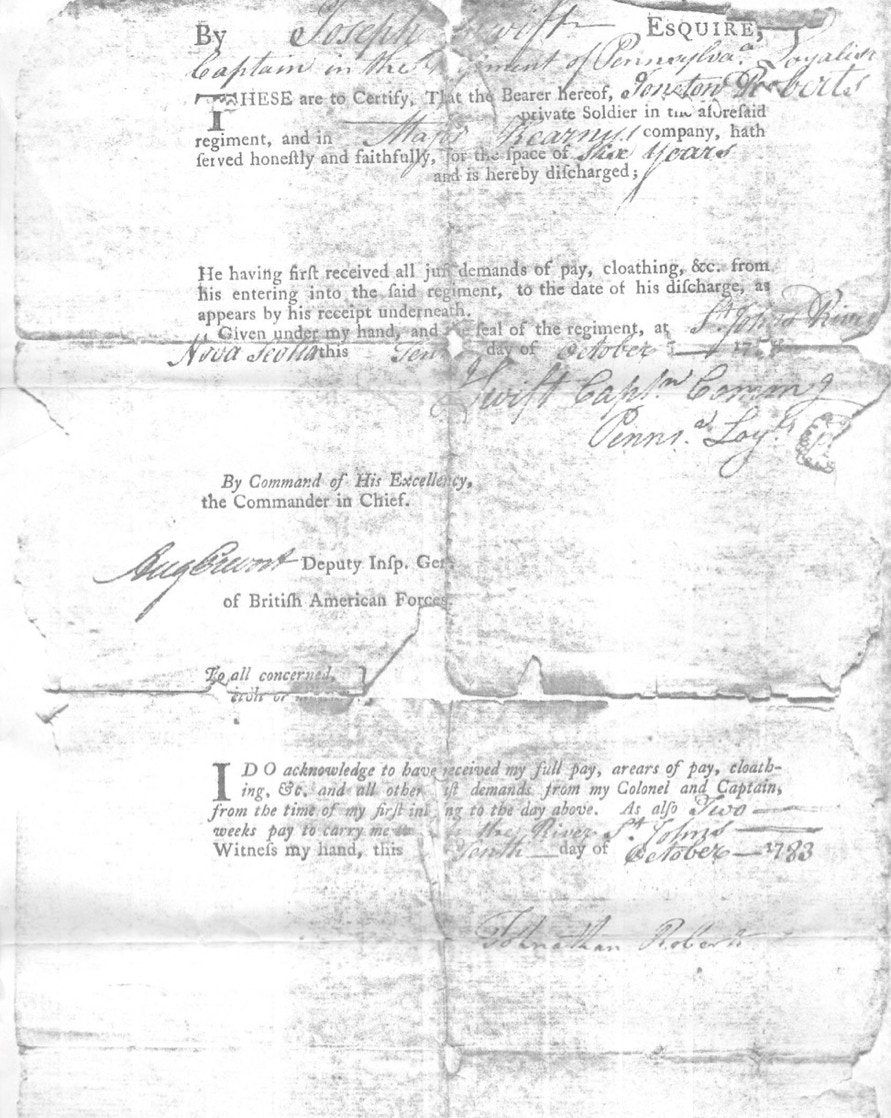 By Joseph Swift ESQUIRE,
Captain in the Regiment of Pennsylva.a Loyalists
THESE are to Certify, That the Bearer hereof, Roberts
private Soldier in the aforeſaid
regiment, and in Major Kearnys company, hath
ſerved honeſtly and faithfully, for the ſpace of Six years
and is hereby diſcharged;
He having firſt received all juſt demands of pay, cloathing, &c. from
his entering into the ſaid regiment, to the date of his diſcharge, as
appears by his receipt underneath.
Given under my hand, and the ſeal of the regiment, at St. Johns River
Nova Scotia this Tenth day of October
Swift Capt.n Comang
Penns.a Loy.ts
By Command of His Excellency,
the Commander in Chief.
Deputy Inſp. Gen.
of British American Forces.
To all concerned,
I DO acknowledge to have received my full pay, arears of pay, cloath-
ing, &c. and all other juſt demands from my Colonel and Captain,
from the time of my firſt to the day above. As alſo Two
weeks pay to carry me the River St. Johns
Witneſs my hand, this Tenth day of October 1783
Johnathan Roberts